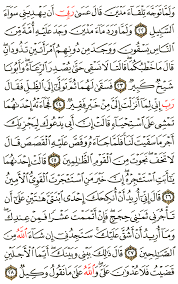 وَلَمَّا تَوَجَّهَ تِلْقَآءَ مَدْيَنَ قَالَ عَسَىٰ رَبِّيٓ أَن يَهْدِيَنِي سَوَآءَ
ٱلسَّبِيلِ ٢٢ وَلَمَّا وَرَدَ مَآءَ مَدْيَنَ وَجَدَ عَلَيْهِ أُمَّةً مِّنَ
ٱلنَّاسِ يَسْقُونَ وَوَجَدَ مِن دُونِهِمُ ٱمْرَأَتَيْنِ تَذُودَانِۖ
قَالَ مَا خَطْبُكُمَاۖ قَالَتَا لَا نَسْقِي حَتَّىٰ يُصْدِرَ ٱلرِّعَآءُۖ وَأَبُونَا
شَيْخٌ كَبِيرٌ ٢٣ فَسَقَىٰ لَهُمَا ثُمَّ تَوَلَّىٰٓ إِلَى ٱلظِّلِّ فَقَالَ
رَبِّ إِنِّي لِمَآ أَنزَلْتَ إِلَيَّ مِنْ خَيْرٍ فَقِيرٌ ٢٤ فَجَآءَتْهُ إِحْدَىٰهُمَا
تَمْشِي عَلَى ٱسْتِحْيَآءٍ قَالَتْ إِنَّ أَبِي يَدْعُوكَ لِيَجْزِيَكَ
أَجْرَ مَا سَقَيْتَ لَنَاۚ فَلَمَّا جَآءَهُۥ وَقَصَّ عَلَيْهِ ٱلْقَصَصَ قَالَ
لَا تَخَفْۖ نَجَوْتَ مِنَ ٱلْقَوْمِ ٱلظَّٰلِمِينَ ٢٥ قَالَتْ إِحْدَىٰهُمَا
يَٰٓأَبَتِ ٱسْتَـْٔجِرْهُۖ إِنَّ خَيْرَ مَنِ ٱسْتَـْٔجَرْتَ ٱلْقَوِيُّ ٱلْأَمِينُ
٢٦ قَالَ إِنِّيٓ أُرِيدُ أَنْ أُنكِحَكَ إِحْدَى ٱبْنَتَيَّ هَٰتَيْنِ عَلَىٰٓ أَن
تَأْجُرَنِي ثَمَٰنِيَ حِجَجٍۖ فَإِنْ أَتْمَمْتَ عَشْرًا فَمِنْ عِندِكَۖ
وَمَآ أُرِيدُ أَنْ أَشُقَّ عَلَيْكَۚ سَتَجِدُنِيٓ إِن شَآءَ ٱللَّهُ مِنَ
ٱلصَّٰلِحِينَ ٢٧ قَالَ ذَٰلِكَ بَيْنِي وَبَيْنَكَۖ أَيَّمَا ٱلْأَجَلَيْنِ
قَضَيْتُ فَلَا عُدْوَٰنَ عَلَيَّۖ وَٱللَّهُ عَلَىٰ مَا نَقُولُ وَكِيلٌ ٢٨